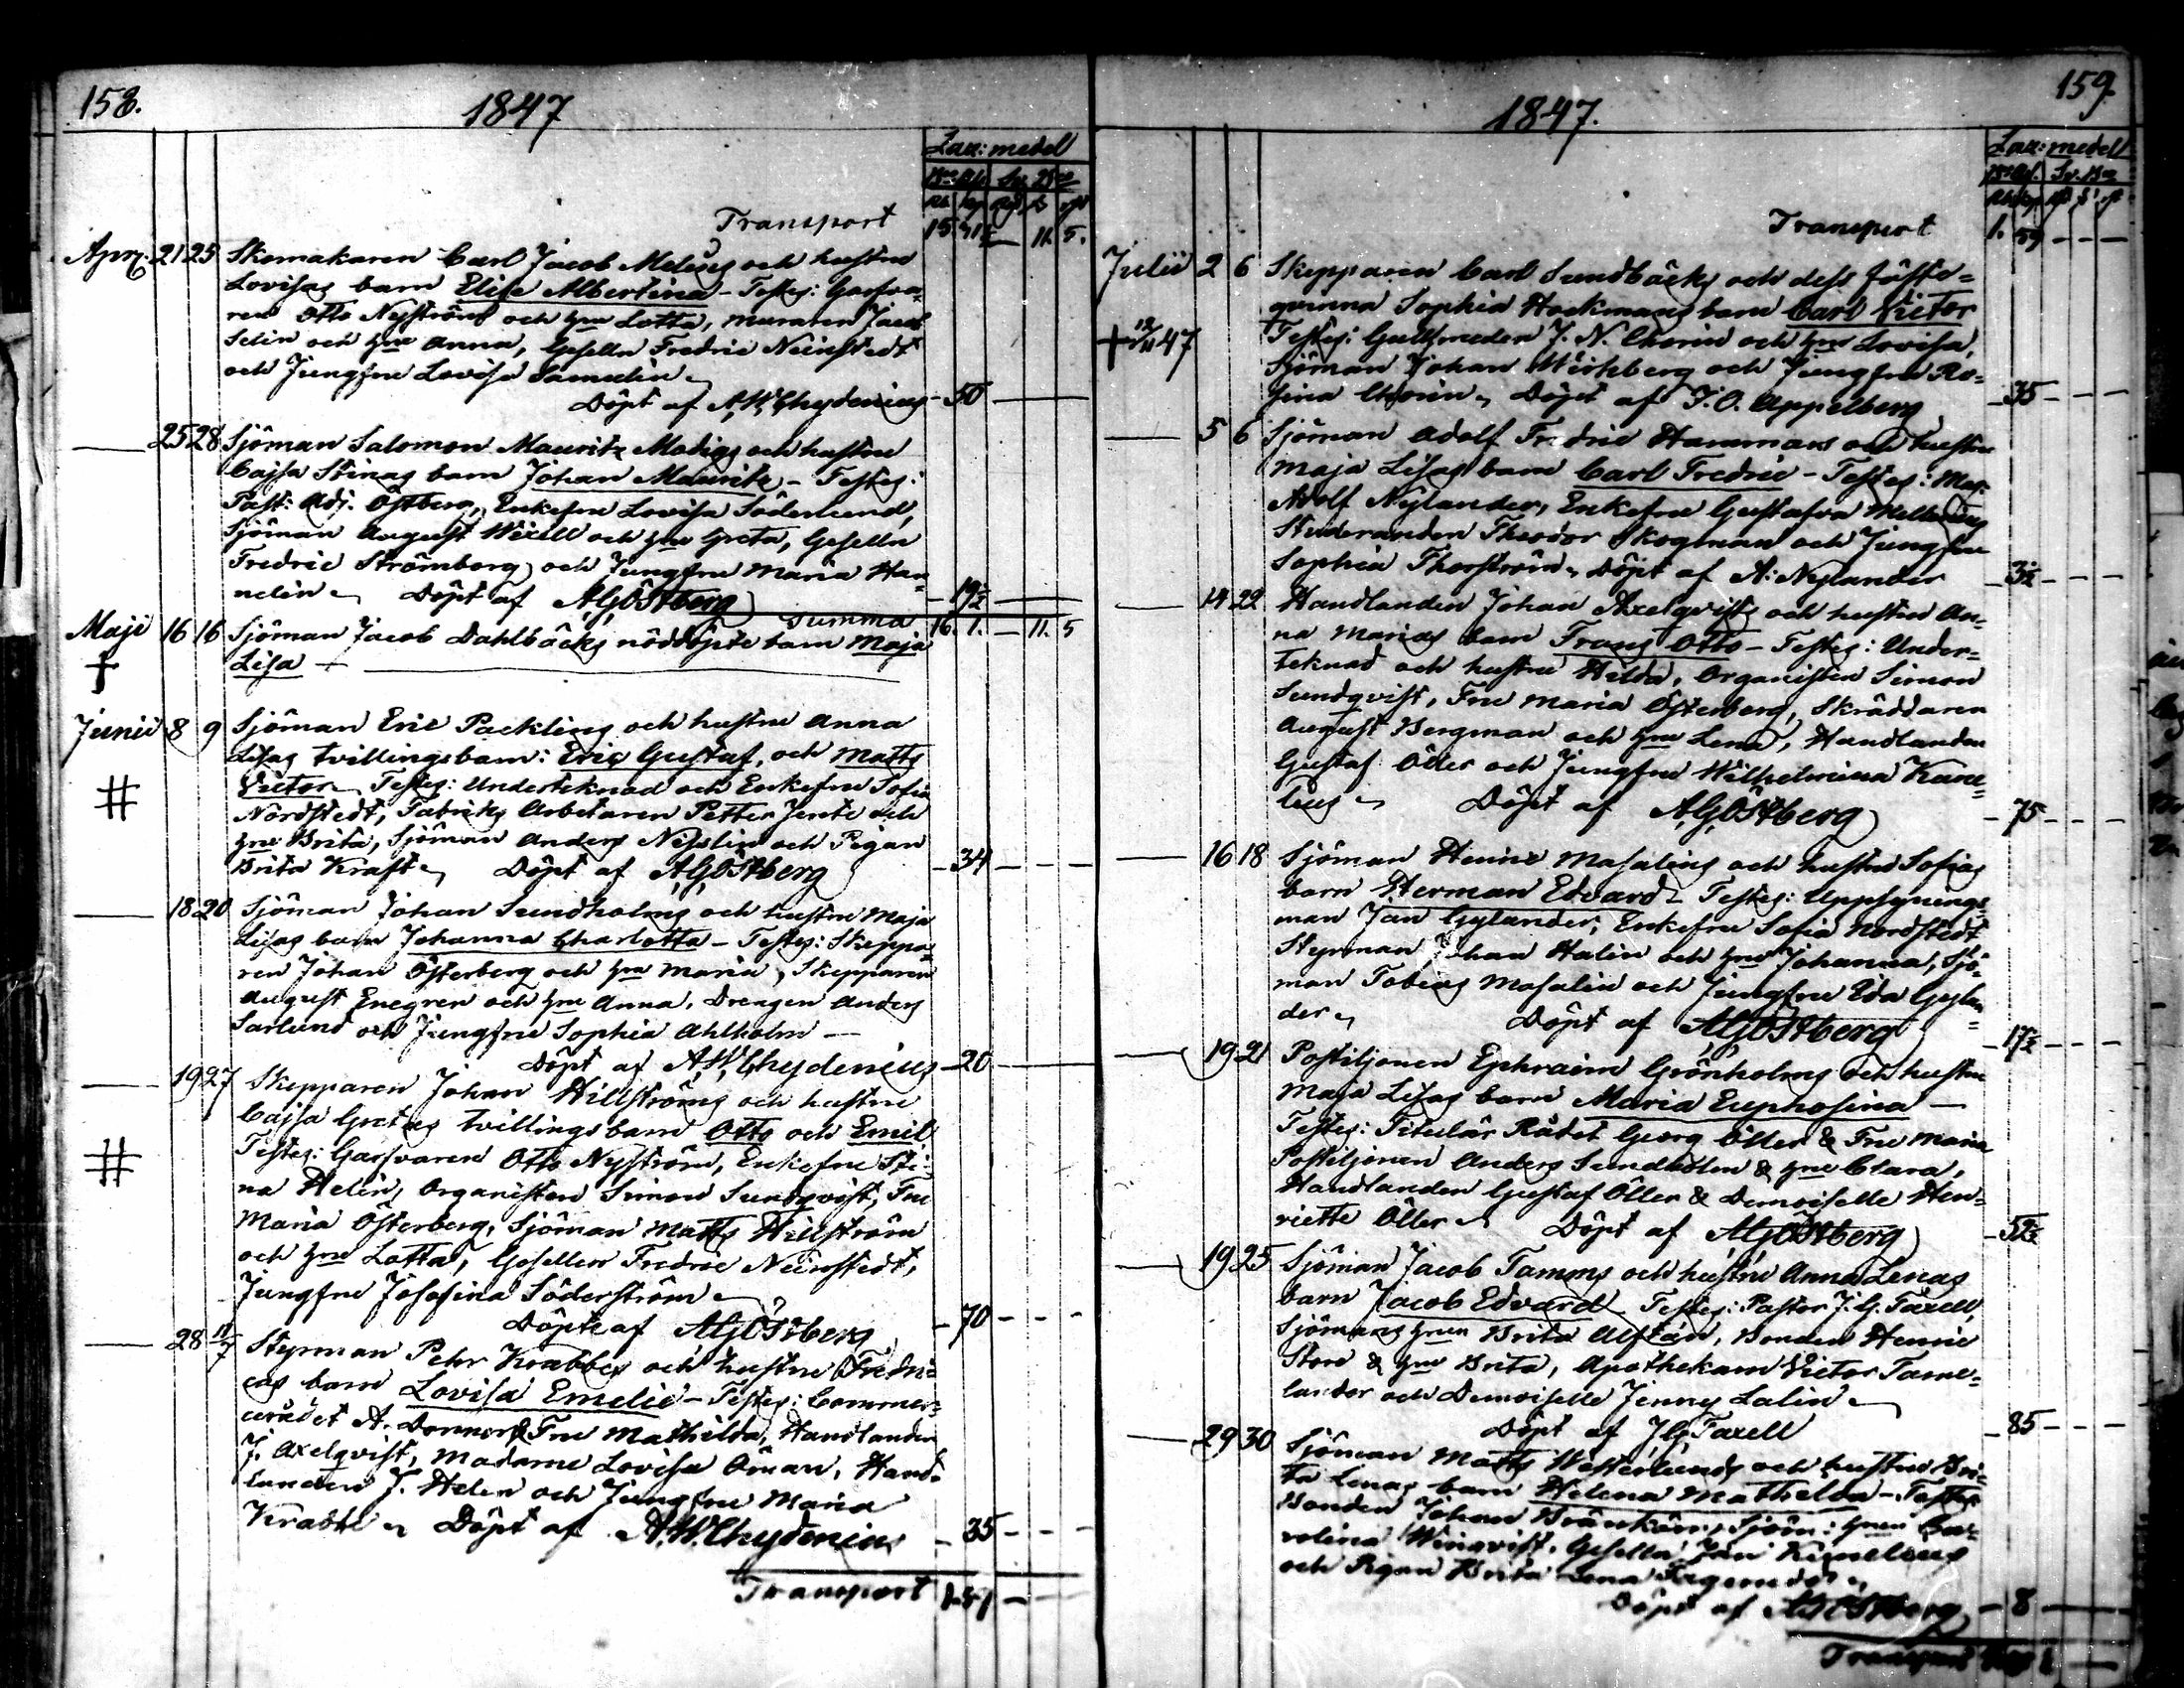 158.
1847
Laz: medel
Transport 15 11. 5.
Apr: 21 25 Skomakaren Carl Jacob Melins och hustru
Lovisas barn Elise Albertina - Testes: Garfva-
ren Otto Nyström och hru Lotta, muraren Jacob
Selin och hru Anna, Geselln Fredric
och Jungfru Lovisa Samulin
Döpt af A.W. Chydenius - 50 -
25 28 Sjöman Salomon Mauritz Madigs och hustru
Cajsa Stinas barn Johan Mauritz - Testes:
Past: Adj. Östberg, Enkefru Lovisa Söderlund,
Sjöman August Wixell och hru Greta, Geselln
Fredric Strömborg och Jungfru Maria Han-
nelin Döpt af A.G. Östberg - 19½ -
Summa 16. 1. - 11. 5
Maji 16 16 Sjöman Jacob Dahlbäcks nöddöpte barn Maja
Lisa -
Junii 8 9 Sjöman Eric Packlins och hustru Anna
Lisas tvillingsbarn: Eric Gustaf, och Matts
Victor Testes: Undertecknad och Enkefru Sofia
Nordstedt, Fabriks Arbetaren Petter Jerte och
hru Brita, Sjöman Anders Nyslin och Pigan
Brita Kraft Döpt af A.G. Östberg - 34 -
18 20 Sjöman Johan Sundholms och hustru Maja
Lisas barn Johanna Charlotta - Testes: Skeppa-
ren Johan Österberg och hru Maria, Skepparen
August Enegren och hru Anna, Drengen Anders
Sarlund och Jungfru Sophia Ahlholm -
Döpt af A.W. Chydenius - 20 -
19 27 Skepparen Johan Hillströms och hustru
Cajsa Gretas tvillingsbarn Otto och Emil
Testes: Garfvaren Otto Nyström, Enkefru Sti-
na Helin, Organisten Simon Sundqvist, Fru
Maria Österberg, Sjöman Matts Hillström
och hru Lotta, Gesellen Fredric
Jungfru Josefina Söderström
Döpte af A.G. Östberg - 70 -
28 11/7 Styrman Pehr Krabbes och hustru Fredri-
cas barn Lovisa Emelie - Testes: Commer-
cerådet A. Donner & Fru Mathilda, Handlanden
J. Axelqvist, Madame Lovisa Öman, Hand-
landen J. Helen och Jungfru Maria
Krabbe Döpt af A.W. Chydenius - 35 -
Transport
159.
1847.
Laz: medel
Transport 1. 59 -
Julii 2 6 Skepparen Carl Sundbäcks och dess fäste-
qvinna Sophia Hockmans barn Carl Victor
Testes: Guldsmeden J. N. Chorin och hru Lovisa,
Sjöman Johan Wichberg och Jungfru Ro-
sina Chorin Döpt af J.O. Appelberg - 35 -
5 6 Sjöman Adolf Fredric Hammars och hustru
Maja Lisas barn Carl Fredric - Testes: Mag.
Adolf Nylander, Enkefru Gustafva
Studeranden Theodor Skogman och Jungfru
Sophia Thorström Döpt af A. Nylander
14 22 Handlanden Johan Axelqvists och hustru An-
na Marias barn Frans Otto - Testes: Under-
teknad och hustru Hilda, Organisten Simon
Sundqvist, Fru Maria Österberg, Skräddaren
August Bergman och hru Lena, Handlanden
Gustaf Öller och Jungfru Wilhelmina Kare-
lius Döpt af A.G. Östberg - 75 -
16 18 Sjöman Henric Masalins och hustru Sofias
barn Herman Edvard - Testes: Uppsynings-
man Jan Gylander, Enkefru Sofia Nordstedt
Styrman Johan Halin och hru Johanna, Sjö-
man Tobias Masalin och Jungfru Eda Gylan-
der Döpt af A.G. Östberg - 17½ -
19 21 Postiljonen Ephraim Grönholms och hustru
Maja Lisas barn Maria Euphosina -
Testes: Titulär Rådet Georg Öller & Fru Maria
Postiljonen Anders Sundholm & hru Clara,
Handlanden Gustaf Öller & Demoiselle Hen-
riette Öller Döpt af A.G. Östberg - 52½
19 25 Sjöman Jacob Tamms och hustru Anna Lenas
barn Jacob Edvard - Testes: Pastor J.G. Taxell,
Sjömans hrun Brita Alftan, Bonden Henric
Store & hru Brita, Apothekaren Victor Tame-
lander och Demoiselle Jenny Lalin
Döpt af J.G. Taxell - 85 -
29 30 Sjöman Matts Westerlunds och hustru Bri-
ta Lenas barn Helena Mathilda - Testes:
Bonden Johan Sjöm: hrun Ca-
rolina Winqvist, Geselln Jan
och Pigan Brita Lena
Döpt af A.G. Östberg - 8 -
Transport